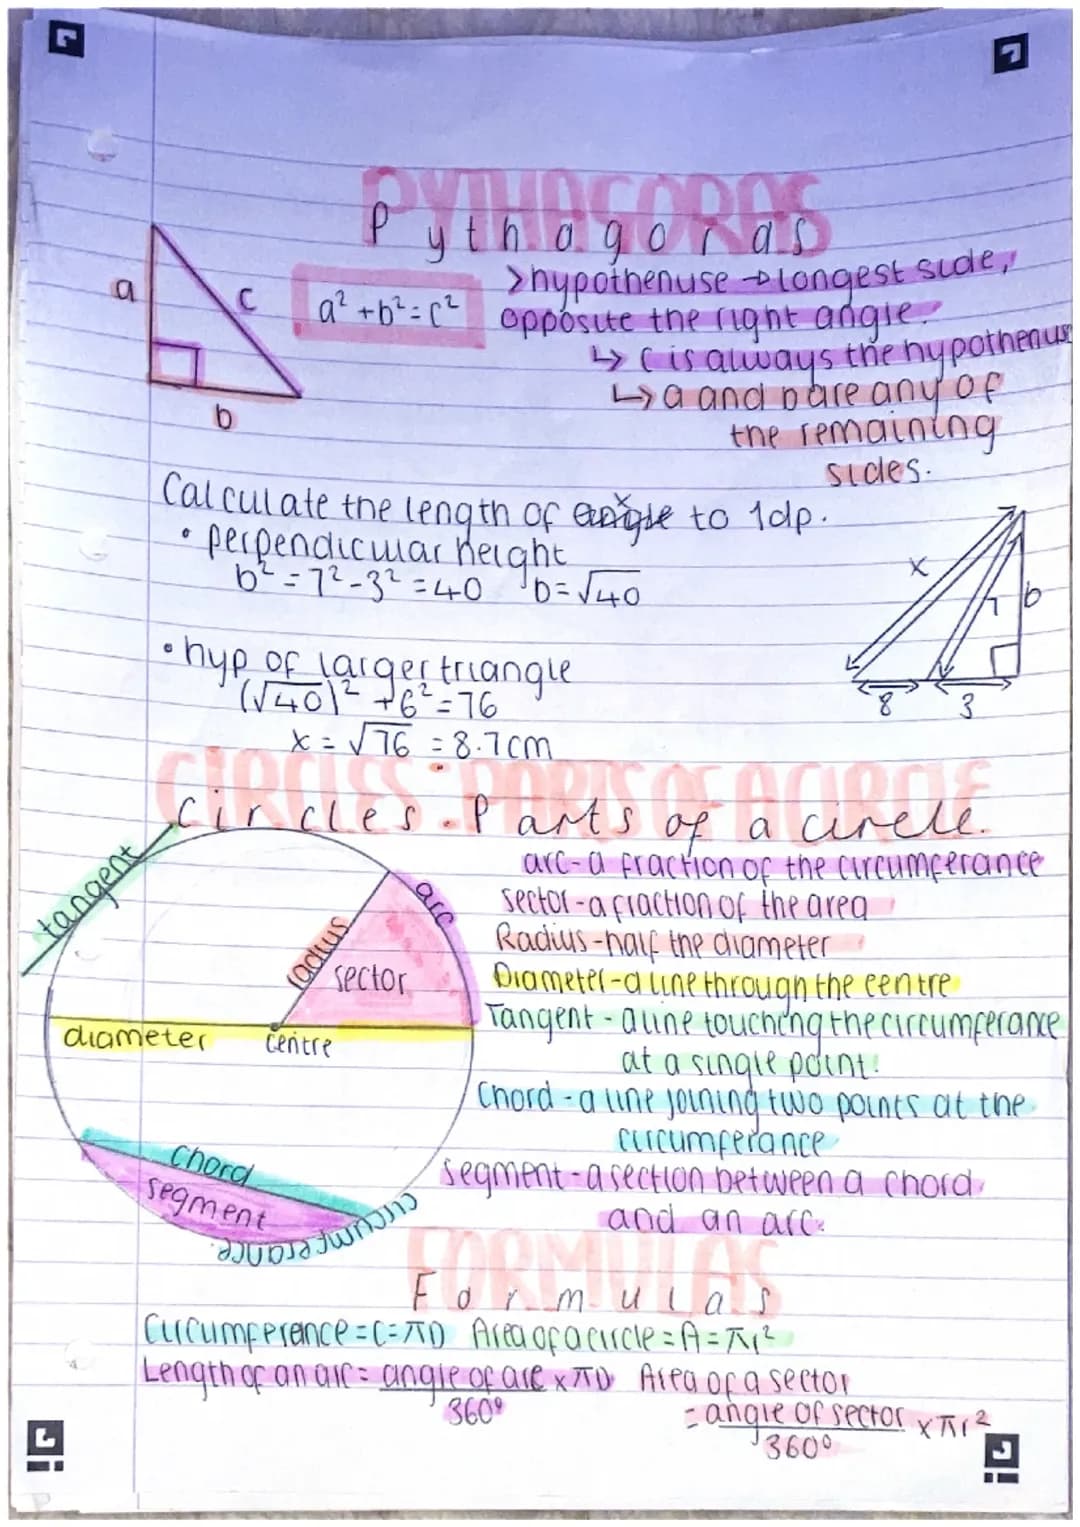 PYTHAGORAS
Pythagoras
a
c
b
a² + b² = c²
>hypothenuse → longest side,
opposite the right angle.
↳ c is always the hypothenus
↳ a and b are any of
the remaining
sides.
Calculate the length of x to 1dp.
• perpendicular height
b² = 7² - 3² = 40 b = √40
• hyp of larger triangle
(√40)² + 6² = 76
x = √76 = 8.7cm
x
7
b
8
3
CIRCLES: PARTS OF A CIRCLE
Circles: Parts of a circle.
tangent
arc
radius
sector
diameter
centre
chord
segment
circumferance
arc - a fraction of the circumferance
sector - a fraction of the area
Radius - half the diameter
Diameter - a line through the centre
Tangent - a line touching the circumferance
at a single point.
Chord - a line joining two points at the
circumferance
segment - a section between a chord
and an arc.
FORMULAS
Formulas
Circumference = C = πD Area of a circle = A = πr²
Length of an arc = angle of arc × πD
360°
Area of a sector
= angle of sector × πr²
360°